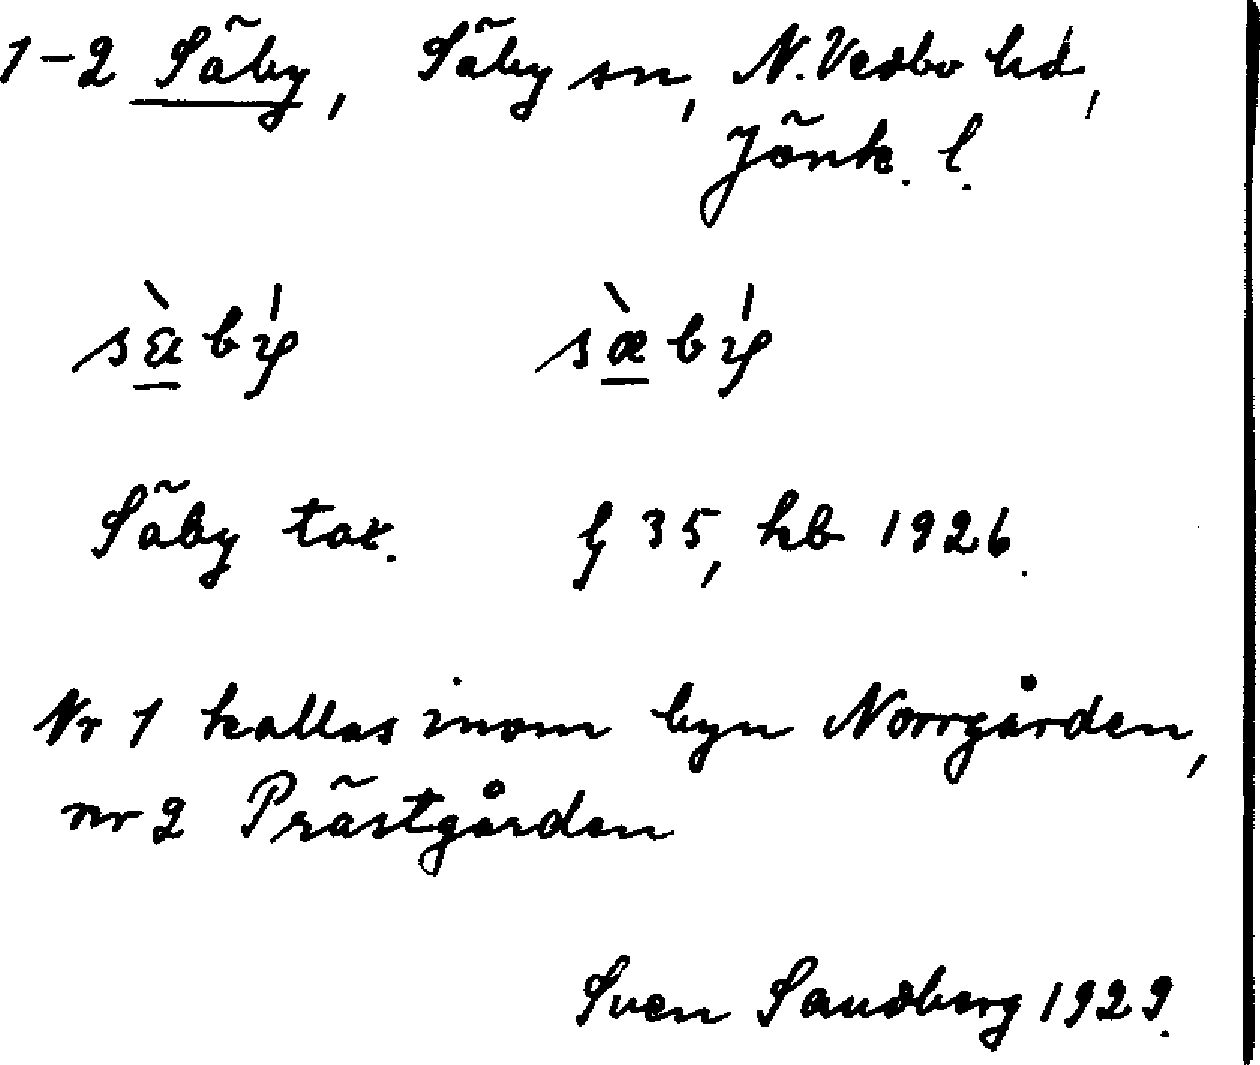 1-2 Säby, Säby sn, N. Vedbo hd,
Jönk. l.
sὰbý sæ̀bý
Säby tax. f 35, hb 1926.
Nr 1 kallas inom byn Norrgården,
nr 2 Prästgården
Sven Sandberg 1929.